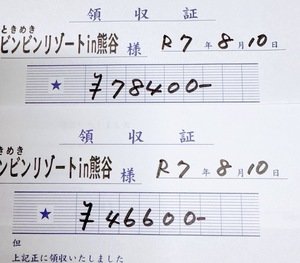 領収証
ときめき
ピンピンリゾートin熊谷 様 R7年8月10日
★ ¥78400-
領収証
きめき
ピンピンリゾートin熊谷 様 R7年8月10日
★ ¥46600-
但
上記正に領収いたしました